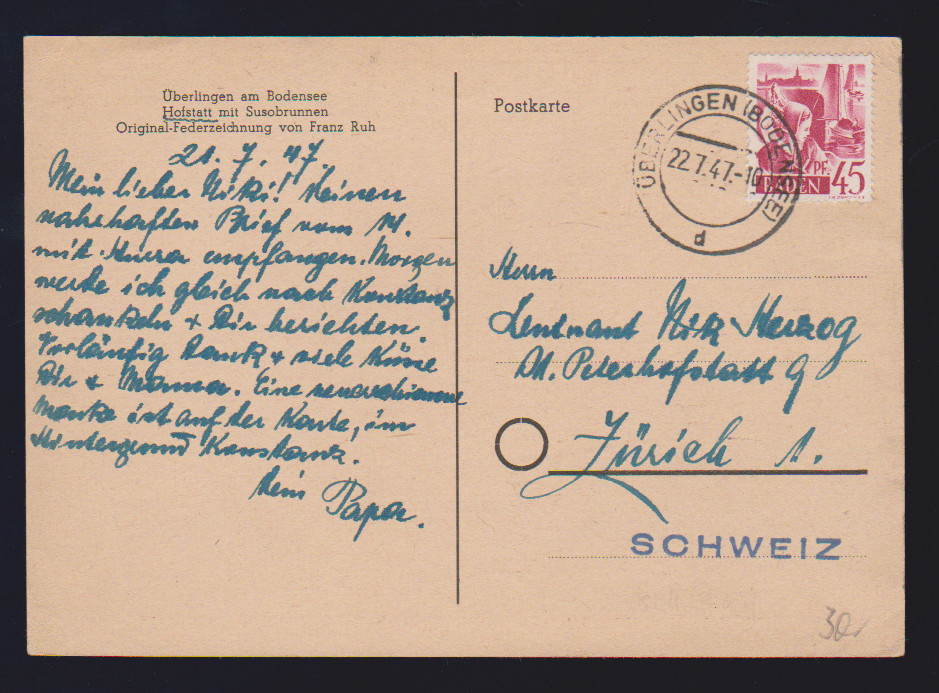 Überlingen am Bodensee
Hofstatt mit Susobrunnen
Original-Federzeichnung von Franz Ruh
21. 7. 47.
Mein lieber Niki! Deinen
nahrhaften Brief vom 14.
mit Hurra empfangen. Morgen
werde ich gleich nach Konstanz
schaukeln + Dir berichten.
Vorläufig Dank + viele Küsse
Dir + Mama. Eine
Marke ist auf der Karte, im
Hintergrund Konstanz.
Dein
Papa.
Postkarte
ÜBERLINGEN (BODENSEE)
22.7.47.-10
d
PF.
BADEN 45
Herrn
Leutnant Nik Herzog
St. Peterhofstatt 9
Zürich 1.
SCHWEIZ